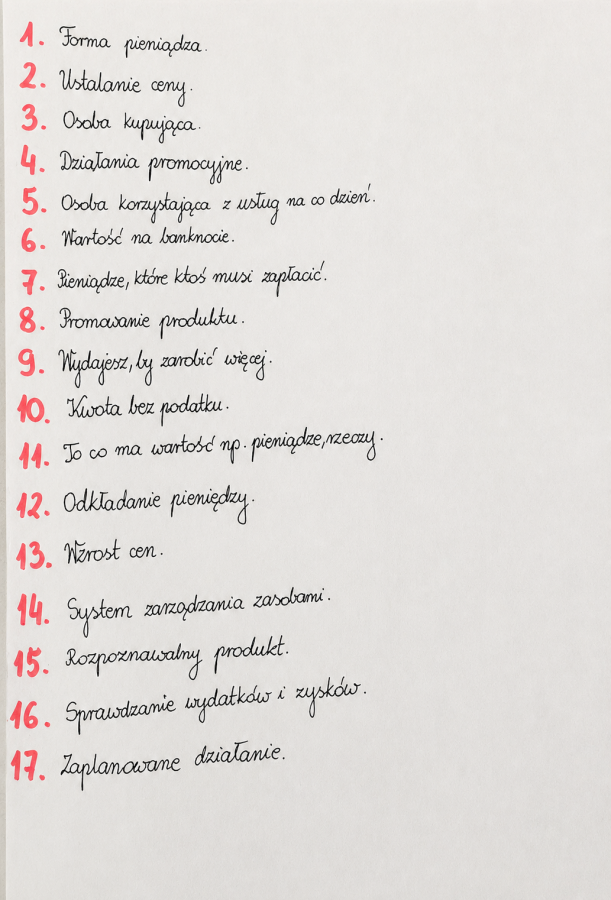 1. Forma pieniądza.
2. Ustalanie ceny.
3. Osoba kupująca.
4. Działania promocyjne.
5. Osoba korzystająca z usług na co dzień.
6. Wartość na banknocie.
7. Pieniądze, które ktoś musi zapłacić.
8. Promowanie produktu.
9. Wydajesz, by zarobić więcej.
10. Kwota bez podatku.
11. To co ma wartość np. pieniądze, rzeczy.
12. Odkładanie pieniędzy.
13. Wzrost cen.
14. System zarządzania zasobami.
15. Rozpoznawalny produkt.
16. Sprawdzanie wydatków i zysków.
17. Zaplanowane działanie.